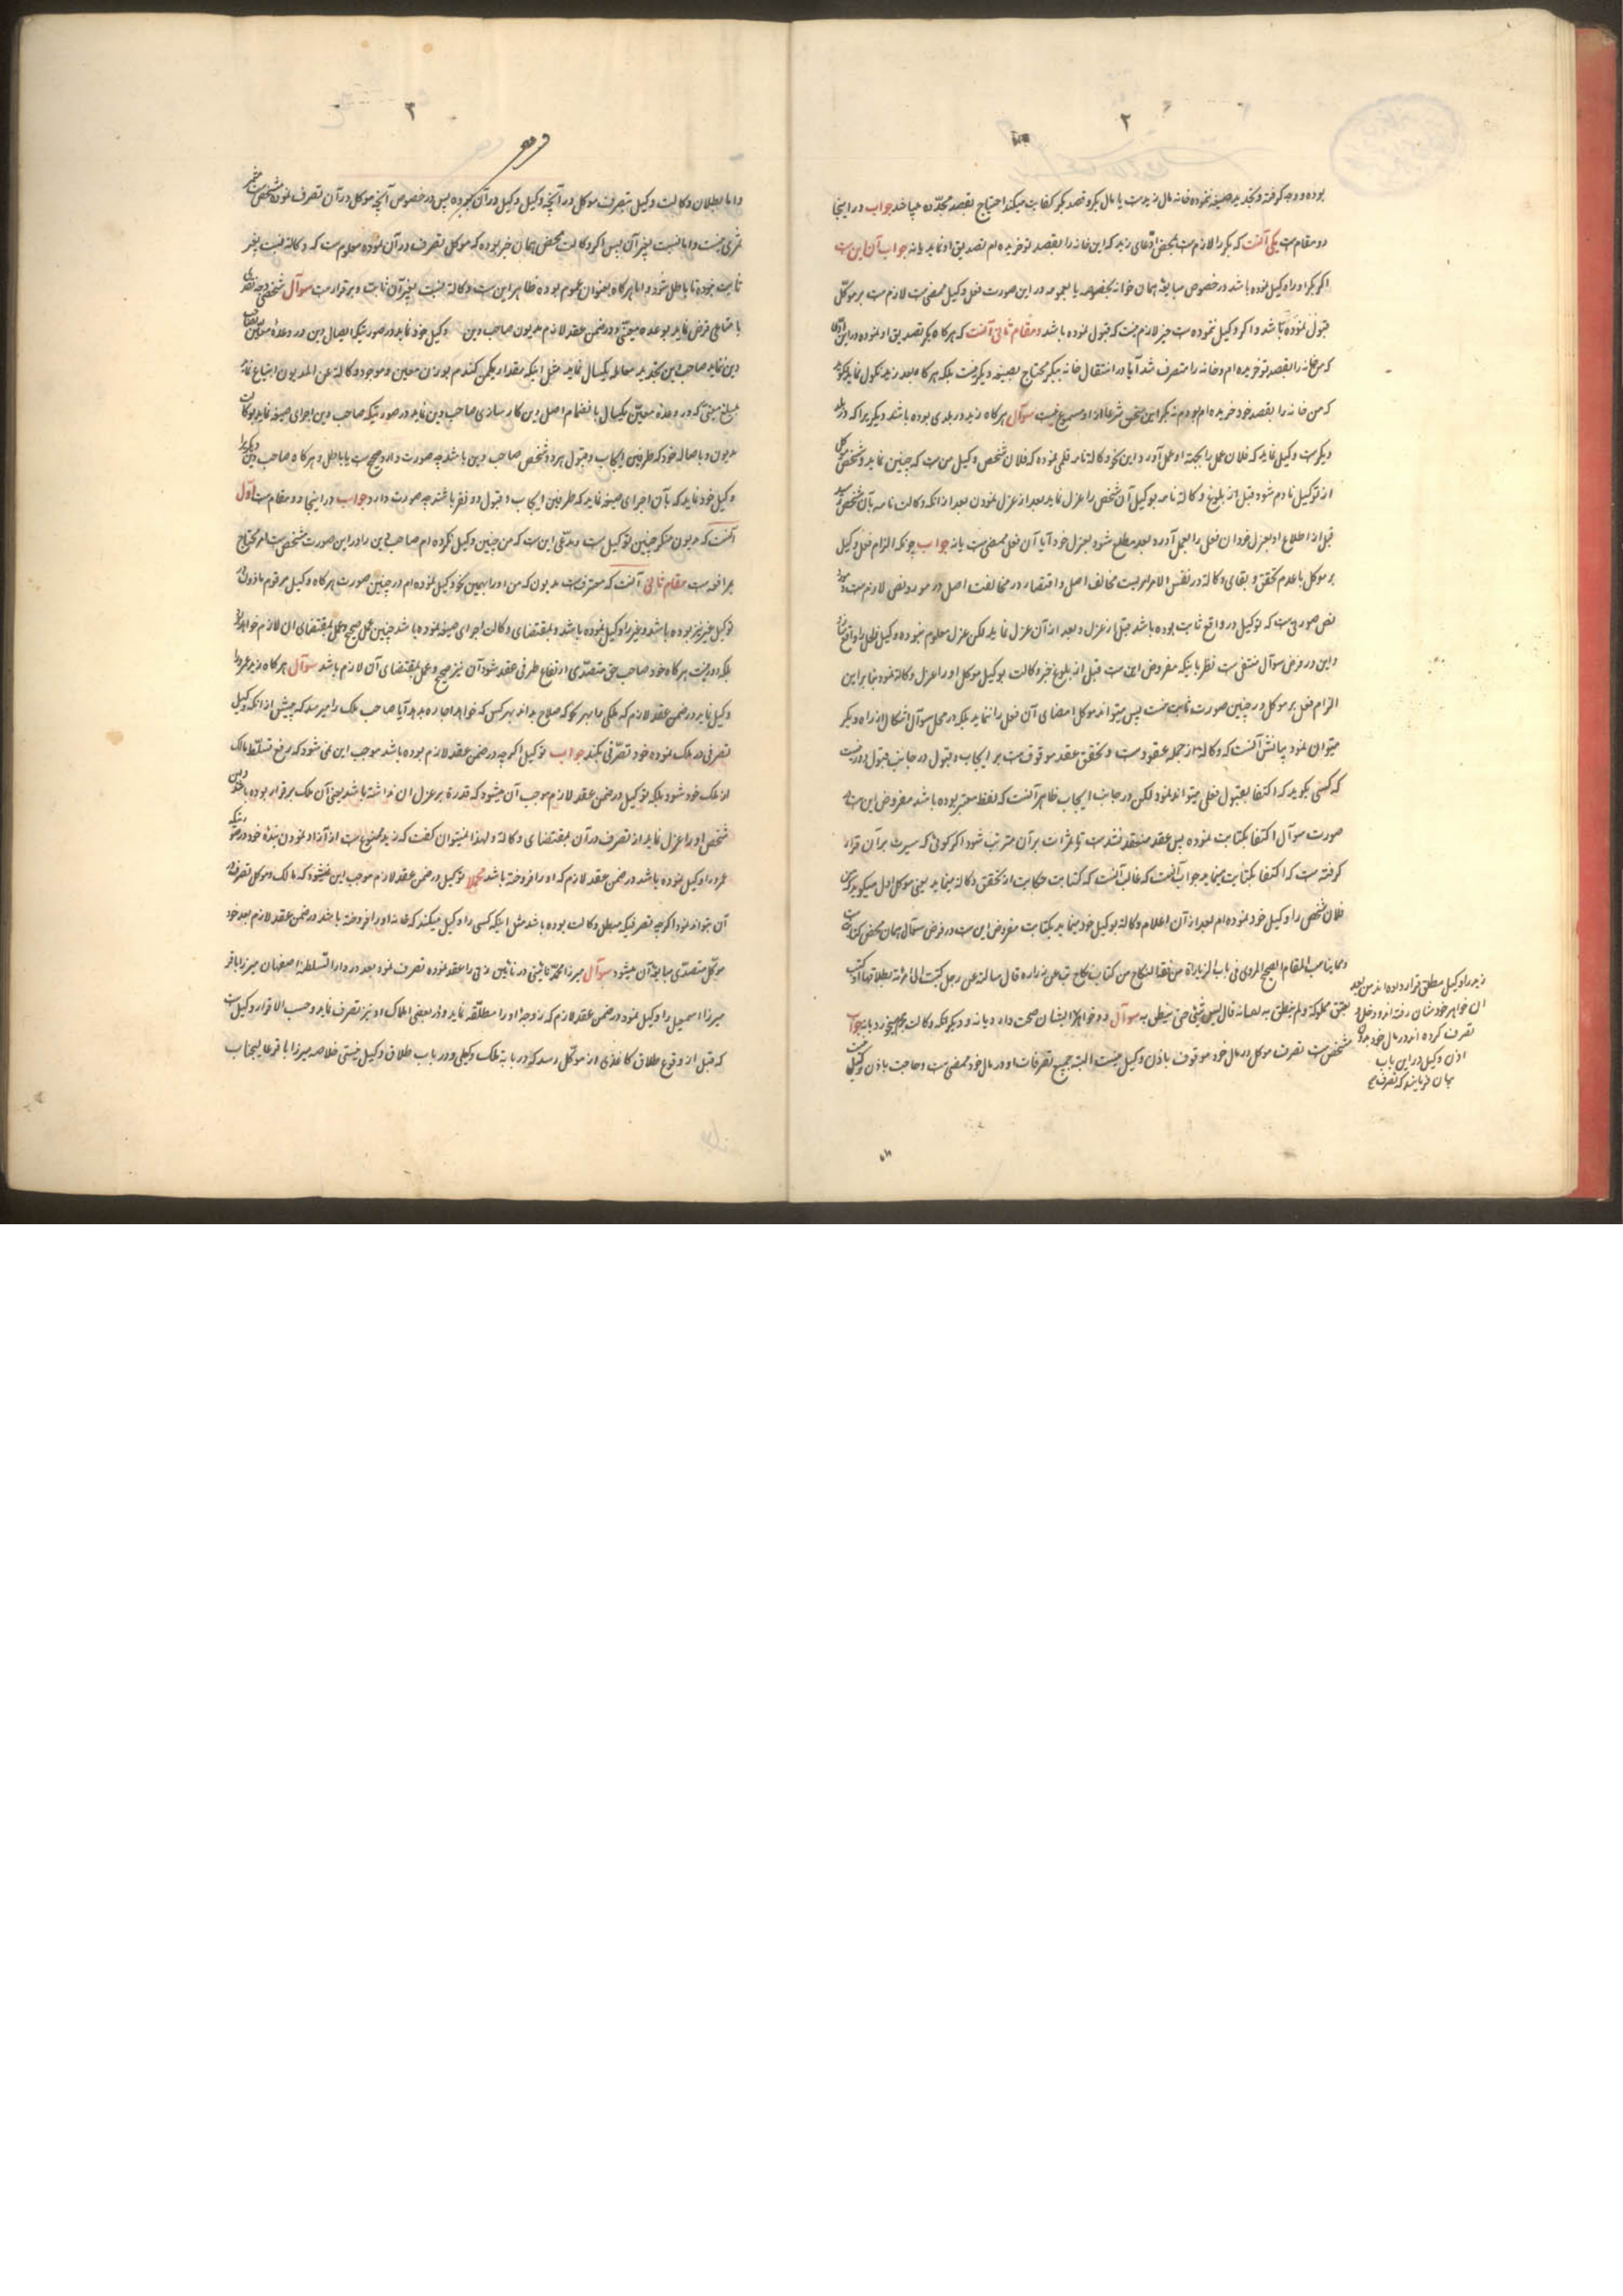 ۲
بوده و وجه گرفته و تجدید صیغه ننموده خانه مال زیدست یا مال بکر و قصد بکر کفایت میکند احتیاج بقصد مجدده میباشد جواب در اینجا
دو مقام ست یکی آنست که بکر را لازم ست بمحض ادعای زید که این خانه را بقصد تو خریده ام تصدیق او نماید یا نه جواب آن این ست
اگر بکر او را وکیل نموده باشد در خصوص مبایعهٔ همان خوانه بخصوصه یا بعمومه در این صورت فعل وکیل ممضی ست لازم ست بر موکل
قبول نموده باشد و اگر وکیل ننموده ست چیز لازم نیست که قبول نموده باشد و مقام ثانی آنست که هر گاه بکر تصدیق او نموده در این ادعا
که من خانه را بقصد تو خریده ام و خانه را متصرف شد آیا در انتقال خانه ببکر محتاج بصیغه دیگر نیست بلکه هر گاه بعد زید نکول نماید بگوید
که من خانه را بقصد خود خریده ام بودم نه بکر این سخن شرعا از او مسموع نیست سوآل هر گاه زید در بلدی بوده باشد و دیگریرا که در بلد
دیگرست وکیل نماید که فلان عمل را بجهة او بعمل آورد و این نحو وکالة نامه قلمی نموده که فلان شخص وکیل من ست که چنین نماید و شخص موکل
از توکیل نادم شود قبل از بلوغ وکالة نامه بوکیل آن شخص را عزل نماید بعد از عزل نمودن بعد از انکه وکالت نامه بآن شخص رسید
قبل از اطلاع او بعزل خود ان فعل را بعمل آورد و بعد مطلع شود بعزل خود آیا آن فعل ممضی ست یا نه جواب چونکه الزام فعل وکیل
بر موکل با عدم تحقق و بقای وکالة در نفس الامر امریست مخالف اصل و اقتصار در مخالفت اصل در مورد نص لازم ست و مورد
نص صورتی ست که توکیل در واقع ثابت بوده باشد قبل از عزل و بعد از آن عزل نماید لکن عزل معلوم نبوده وکیل فعل را واقع ساخته
و این در فرض سوآل منتفی ست نظر باینکه مفروض این ست قبل از بلوغ خبر وکالت بوکیل موکل او را عزل وکالة نمود بنا بر این
الزام فعل بر موکل در چنین صورت ثابت نیست پس میتواند موکل امضای آن فعل را ننماید بلکه در محل سوآل اشکال از راه دیگر
میتوان نمود بیانش آنست که وکالة از جمله عقود ست و تحقق عقد موقوف ست بر ایجاب و قبول در جانب قبول دور نیست
که کسی بگوید که اکتفا بقبول فعلی میتواند نمود لکن در جانب ایجاب ظاهر آنست که لفظ معتبر بوده باشد مفروض این ست
صورت سوآل اکتفا بکتابت نموده پس عقد منعقد نشدست تا ثمرات بر آن مترتب شود اگر گوئی که سیرت بر آن قرار
گرفته ست که اکتفا بکتابت مینمایند جواب آنست که غالب آنست که کتابت حکایت از تحقق وکالة مینماید یعنی موکل اول میگوید که من
فلان شخص را وکیل خود نموده ام بعد از آن اعلام وکالة بوکیل خود مینماید بکتابت مفروض این ست در فرض سوآل همان محض کتابت
و مما یناسب المقام الصحیح المروی فی باب الزیادات من فقه النکاح من کتاب نکاح عن زراره قال سالته عن رجل کتب الی امرئته بطلاقها او کتب
بعتق مملوکه و لم ینطق به لسانه قال لیس بشئ حتی ینطق به سوآل
مشخص ست تصرف موکل در مال خود موقوف باذن وکیل نیست البته جمیع تصرفات او در مال خود ممضی ست و حاجت باذن وکیل نیست
زید را وکیل مطلق قرار داده اند من بعد
ان خواهر خودشان رفته اند و دخل و
تصرف کرده اند در مال خود بدون
اذن وکیل در این باب
بیان فرمایند که تصرف
۳
و اما بطلان وکالت وکیل بتصرف موکل در آنچه وکیل وکیل در آن بوده پس در خصوص آنچه موکل در آن تصرف نموده مشخص ست
ثمری نیست و اما نسبت بغیر آن پس اگر وکالت محض همان خبر بوده که موکل تصرف در آن نموده معلوم ست که وکالة نسبت بغیر
ثابت نبوده تا باطل شود و اما هر گاه بعنوان عموم بوده ظاهر این ست وکالة نسبت بغیر آن ثابت و برقرار ست سوآل شخصی وجه نقد
یا متاعی قرض نماید بوعده معینی و در ضمن عقد لازم مدیون صاحب دین وکیل خود نماید در صورتیکه ایصال دین در وعدهٔ معین
دین نماید صاحب دین تجدید معامله یکسال نماید مثل اینکه مقدار یکمن گندم بوزن معین و موجود وکالة عن المدیون ابتیاع نماید
بمبلغ معینی که در وعده معین یکسال بانضمام اصل دین کارسازی صاحب دین نماید در صورتیکه صاحب دین اجرای صیغه نماید بوکالت
مدیون و باصاله خود که طرفین ایجاب و قبول هر دو شخص صاحب دین باشد چه صورت دارد صحیح ست یا باطل و هر گاه صاحب دین دیگریرا
وکیل خود نماید که بآن اجرای صیغه نماید که طرفین ایجاب و قبول دو نفر باشند چه صورت دارد جواب در اینجا دو مقام ست اول
آنست که مدیون منکر چنین توکیل ست و مدعی این ست که من چنین وکیل نکرده ام صاحب دین را در این صورت مشخص ست امر محتاج
بمرافعه ست مقام ثانی آنست که معترف ست مدیون که من او را بهمین نحو وکیل نموده ام در چنین صورت هر گاه وکیل مرقوم ماذون در
توکیل غیر نیز بوده باشد و غیر را وکیل نموده باشد و بمقتضای وکالت اجرای صیغه نموده باشد چنین عمل صحیح و عمل بمقتضای ان لازم خواهد بود
بلکه دور نیست هر گاه خود صاحب حق متصدی ارتفاع طرفی عقد شود آن نیز صحیح و عمل بمقتضای آن لازم باشد سوآل هر گاه زید عمرو را
وکیل نماید در ضمن عقد لازم که ملکی ما بهر نحو که صلاح بداند بهر کس که خواهد اجاره بدهد آیا صاحب ملک را میرسد که پیش از انکه وکیل
تصرفی در ملک نموده خود تصرفی بکند جواب توکیل اگر چه در ضمن عقد لازم بوده باشد موجب این نمی شود که برفع تسلط مالک
از ملک خود شود بلکه توکیل در ضمن عقد لازم موجب آن میشود که قدرة بر عزل ان نداشته باشد یعنی آن ملک برقرار بوده باشد و این
شخص او را عزل نماید از تصرف در آن بمقتضای وکالة و لهذا نمیتوان گفت که زید ممنوع ست از آزاد نمودن بندهٔ خود در صورتیکه
عمرو را وکیل نموده باشد در ضمن عقد لازم که او را فروخته باشد مجملا توکیل در ضمن عقد لازم موجب این نمیشود که مالک و موکل تصرف در
آن نتواند نمود اگر چه تصرفیکه مبطل وکالت بوده باشد مثل اینکه کسی را وکیل میکند که خانه او را فروخته باشد در ضمن عقد لازم بعد خود
موکل متصدی مبایعهٔ آن میشود سوآل میرزا محمد نائینی در نائین زنی را عقد نموده تصرف نمود بعد در دار السلطنه اصفهان میرزا باقر
میرزا اسمعیل را وکیل نمود در ضمن عقد لازم که زوجهٔ او را مطلقه نماید و در بعضی املاک او نیز تصرف نماید و حسب الاقرار وکیل ست
که قبل از وقوع طلاق کاغذی از موکل رسد که در باب ملک وکیلی و در باب طلاق وکیل نیستی خلاصه میرزا باقر عالیجناب